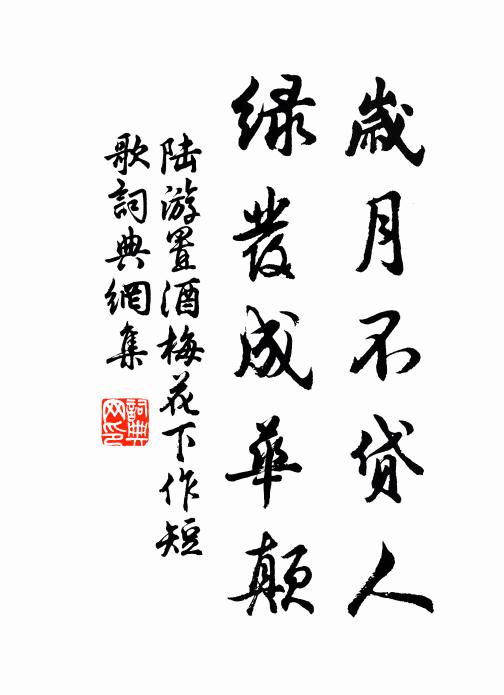 歲月不貸人
綠發成華顛
陸游置酒梅花下作短
歌詞典網集
詞典
网印